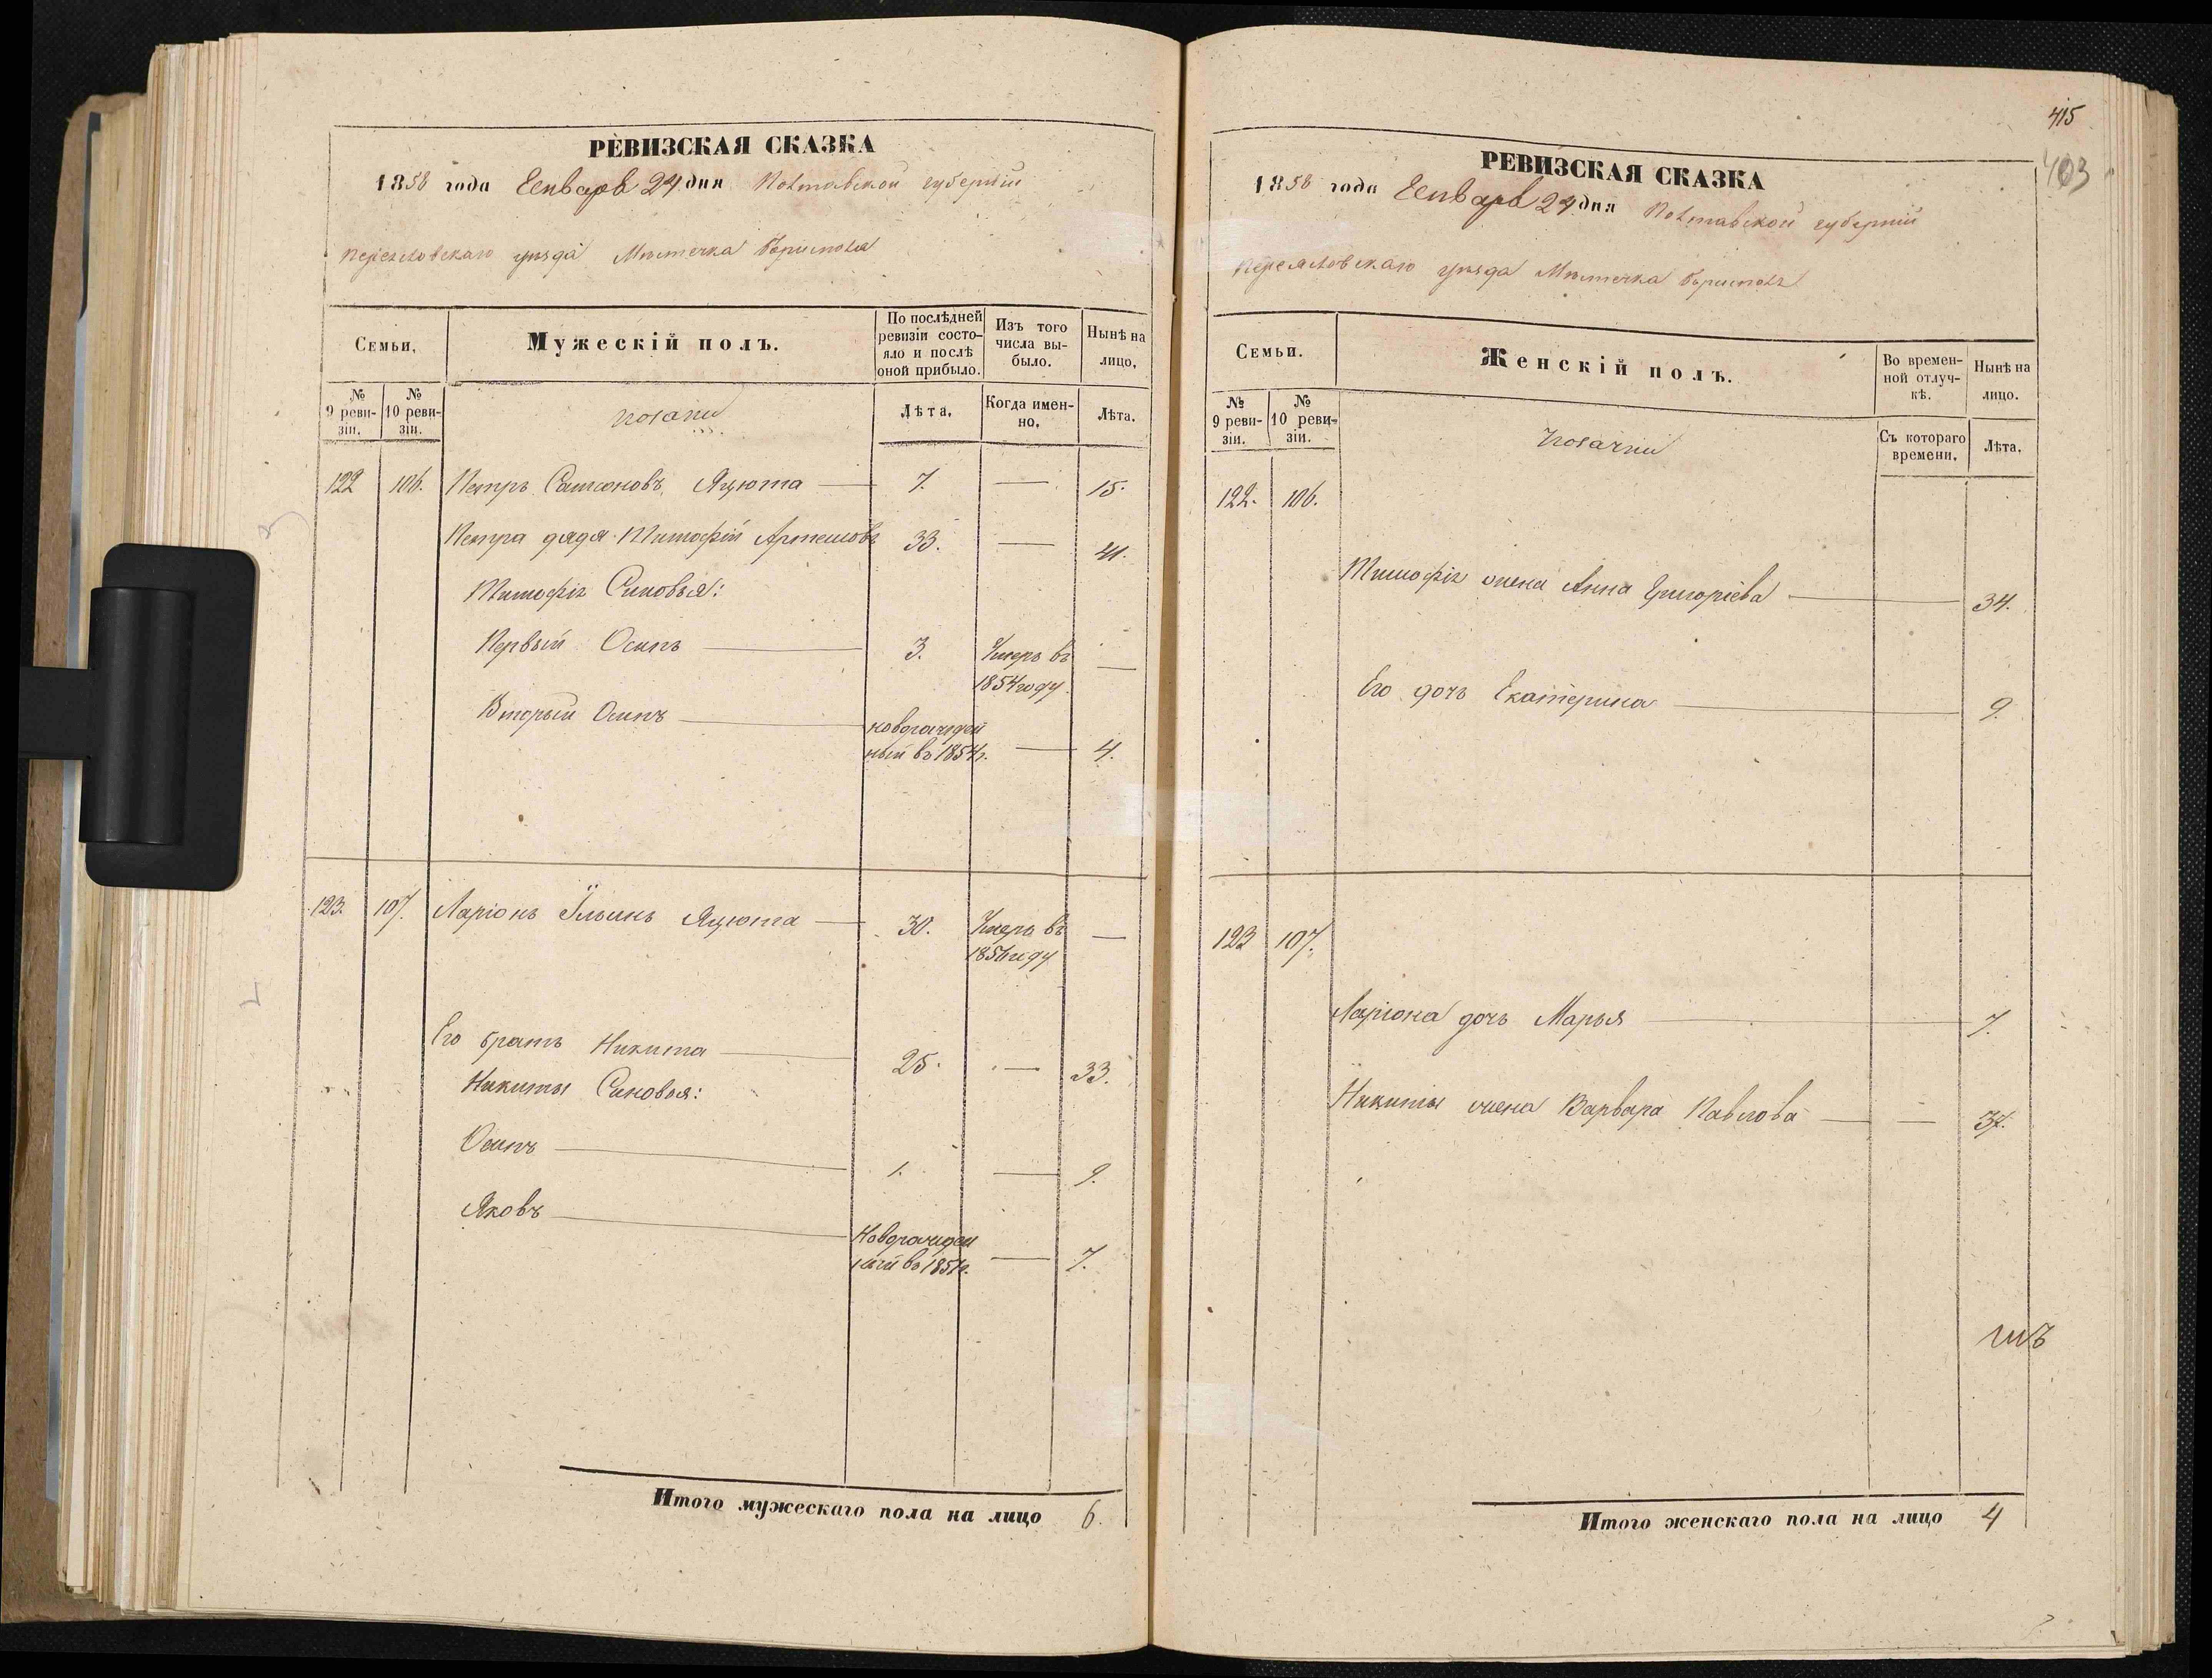 РЕВИЗСКАЯ СКАЗКА
1858 года Генваря 24 дня Полтавской губерніи
Переяловскаго уѣзда Мѣстечка Борисполя
Семьи,
Мужескій полъ.
По послѣдней ревизіи состояло и послѣ оной прибыло.
Изъ того числа выбыло.
Нынѣ на лицо,
№ 9 ревизіи.
№ 10 ревизіи.
Козаки
Лѣта,
Когда именно,
Лѣта.
122 106. Петръ Самсоновъ Яцюта 7. — 15.
Петра дядя Тимофій Артемовъ 33. — 41.
Тимофія Синовья:
Первый Осипъ 3. Умеръ въ 1854 году. —
Вторый Осипъ новорожденный въ 1854 г. — 4.
123. 107. Ларіонъ Ильинъ Яцюта 30. Умеръ въ 1856 году —
Его братъ Никита 25. — 33.
Никиты Синовья:
Осипъ 1. — 9.
Яковъ Новорожденный въ 1851 г. — 7.
Итого мужескаго пола на лицо 6.
415
403
РЕВИЗСКАЯ СКАЗКА
1858 года Генваря 24 дня Полтавской губерніи
Переяловскаго уѣзда Мѣстечка Борисполя
Семьи.
Женскій полъ.
Во временной отлучкѣ.
Нынѣ на лицо.
№ 9 ревизіи.
№ 10 ревизіи.
Козачки
Съ котораго времени.
Лѣта,
122. 106.
Тимофія жена Анна Григоріева 34.
Его дочь Екатерина 9.
123 107.
Ларіона дочь Марья 7.
Никиты жена Варвара Павлова —
Итого женскаго пола на лицо 4